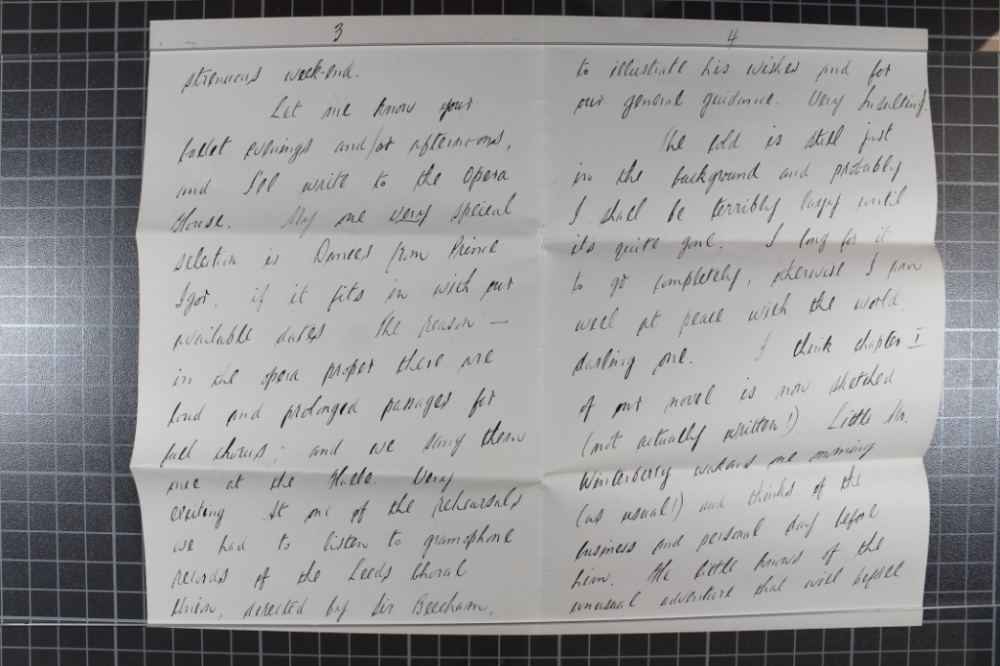 3
strenuous week-end.
Let me know your
ballet evenings and/or afternoons,
and I'll write to the Opera
House. My one very special
selection is Dances from Prince
Igor, if it fits in with our
available dates. The reason —
in the opera proper there are
loud and prolonged passages for
full chorus; and we sang them
once at the Halle. Very
exciting. At one of the rehearsals
we had to listen to gramophone
records of the Leeds Choral
Union, directed by Sir Beecham,
4
to illustrate his wishes and for
our general guidance. Very insulting.
The cold is still just
in the background and probably
I shall be terribly lazy until
it's quite gone. I long for it
to go completely, otherwise I am
well at peace with the world,
darling one. I think chapter I
of our novel is now sketched
(not actually written!) Little Mr.
Winterberry wakens one morning
(as usual!) and thinks of the
business and personal day before
him. He little knows of the
unusual adventure that will befall